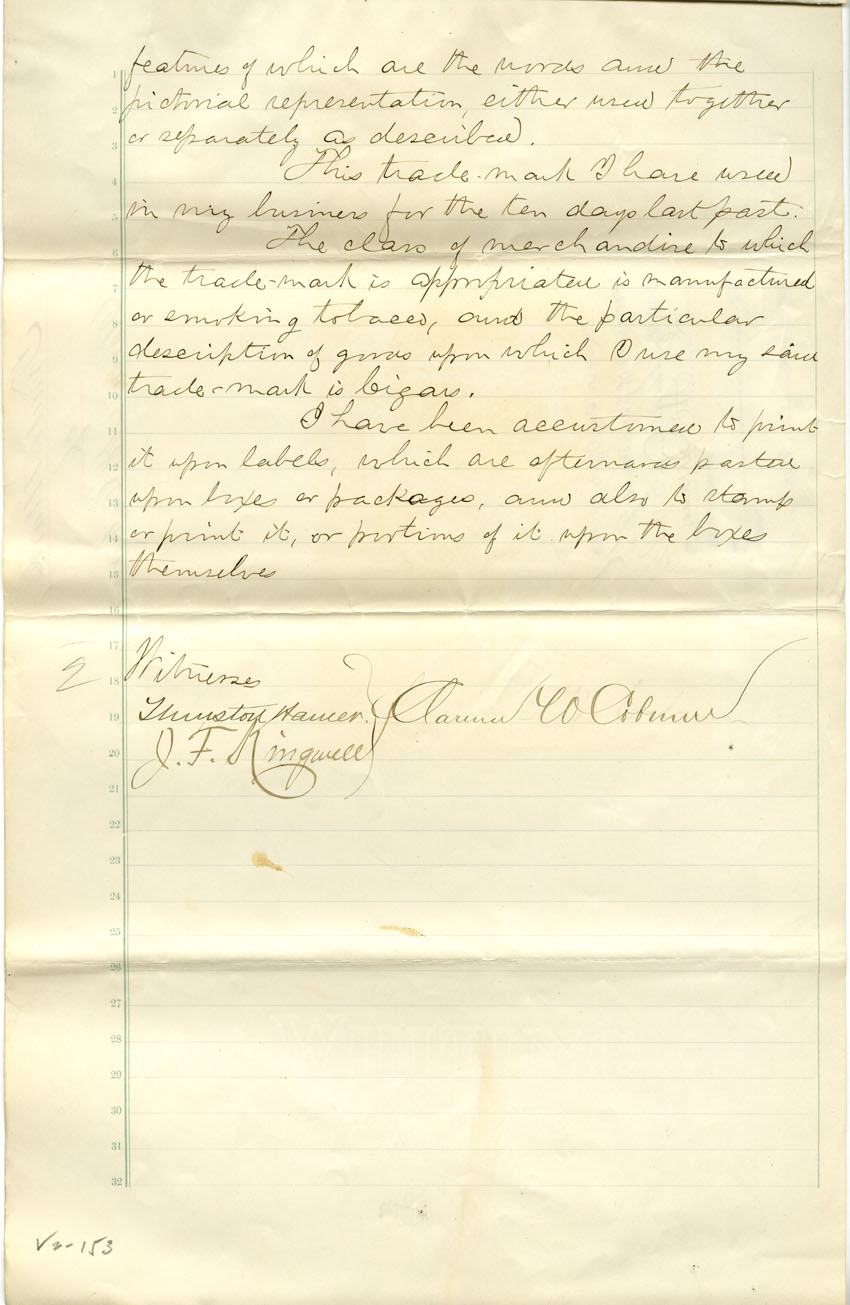 features of which are the words and the
pictorial representation, either used together
or separately as described.
This trade-mark I have used
in my business for the ten days last past.
The class of merchandise to which
the trade-mark is appropriated is manufactured
or smoking tobacco, and the particular
description of goods upon which I use my said
trade-mark is Cigars.
I have been accustomed to print
it upon labels, which are afterwards pasted
upon boxes or packages, and also to stamp
or print it, or portions of it upon the boxes
themselves
2
Witnesses
Hamer. Clarence W
J. F. Kingwell
1
2
3
4
5
6
7
8
9
10
11
12
13
14
15
16
17
18
19
20
21
22
23
24
25
26
27
28
29
30
31
32
153